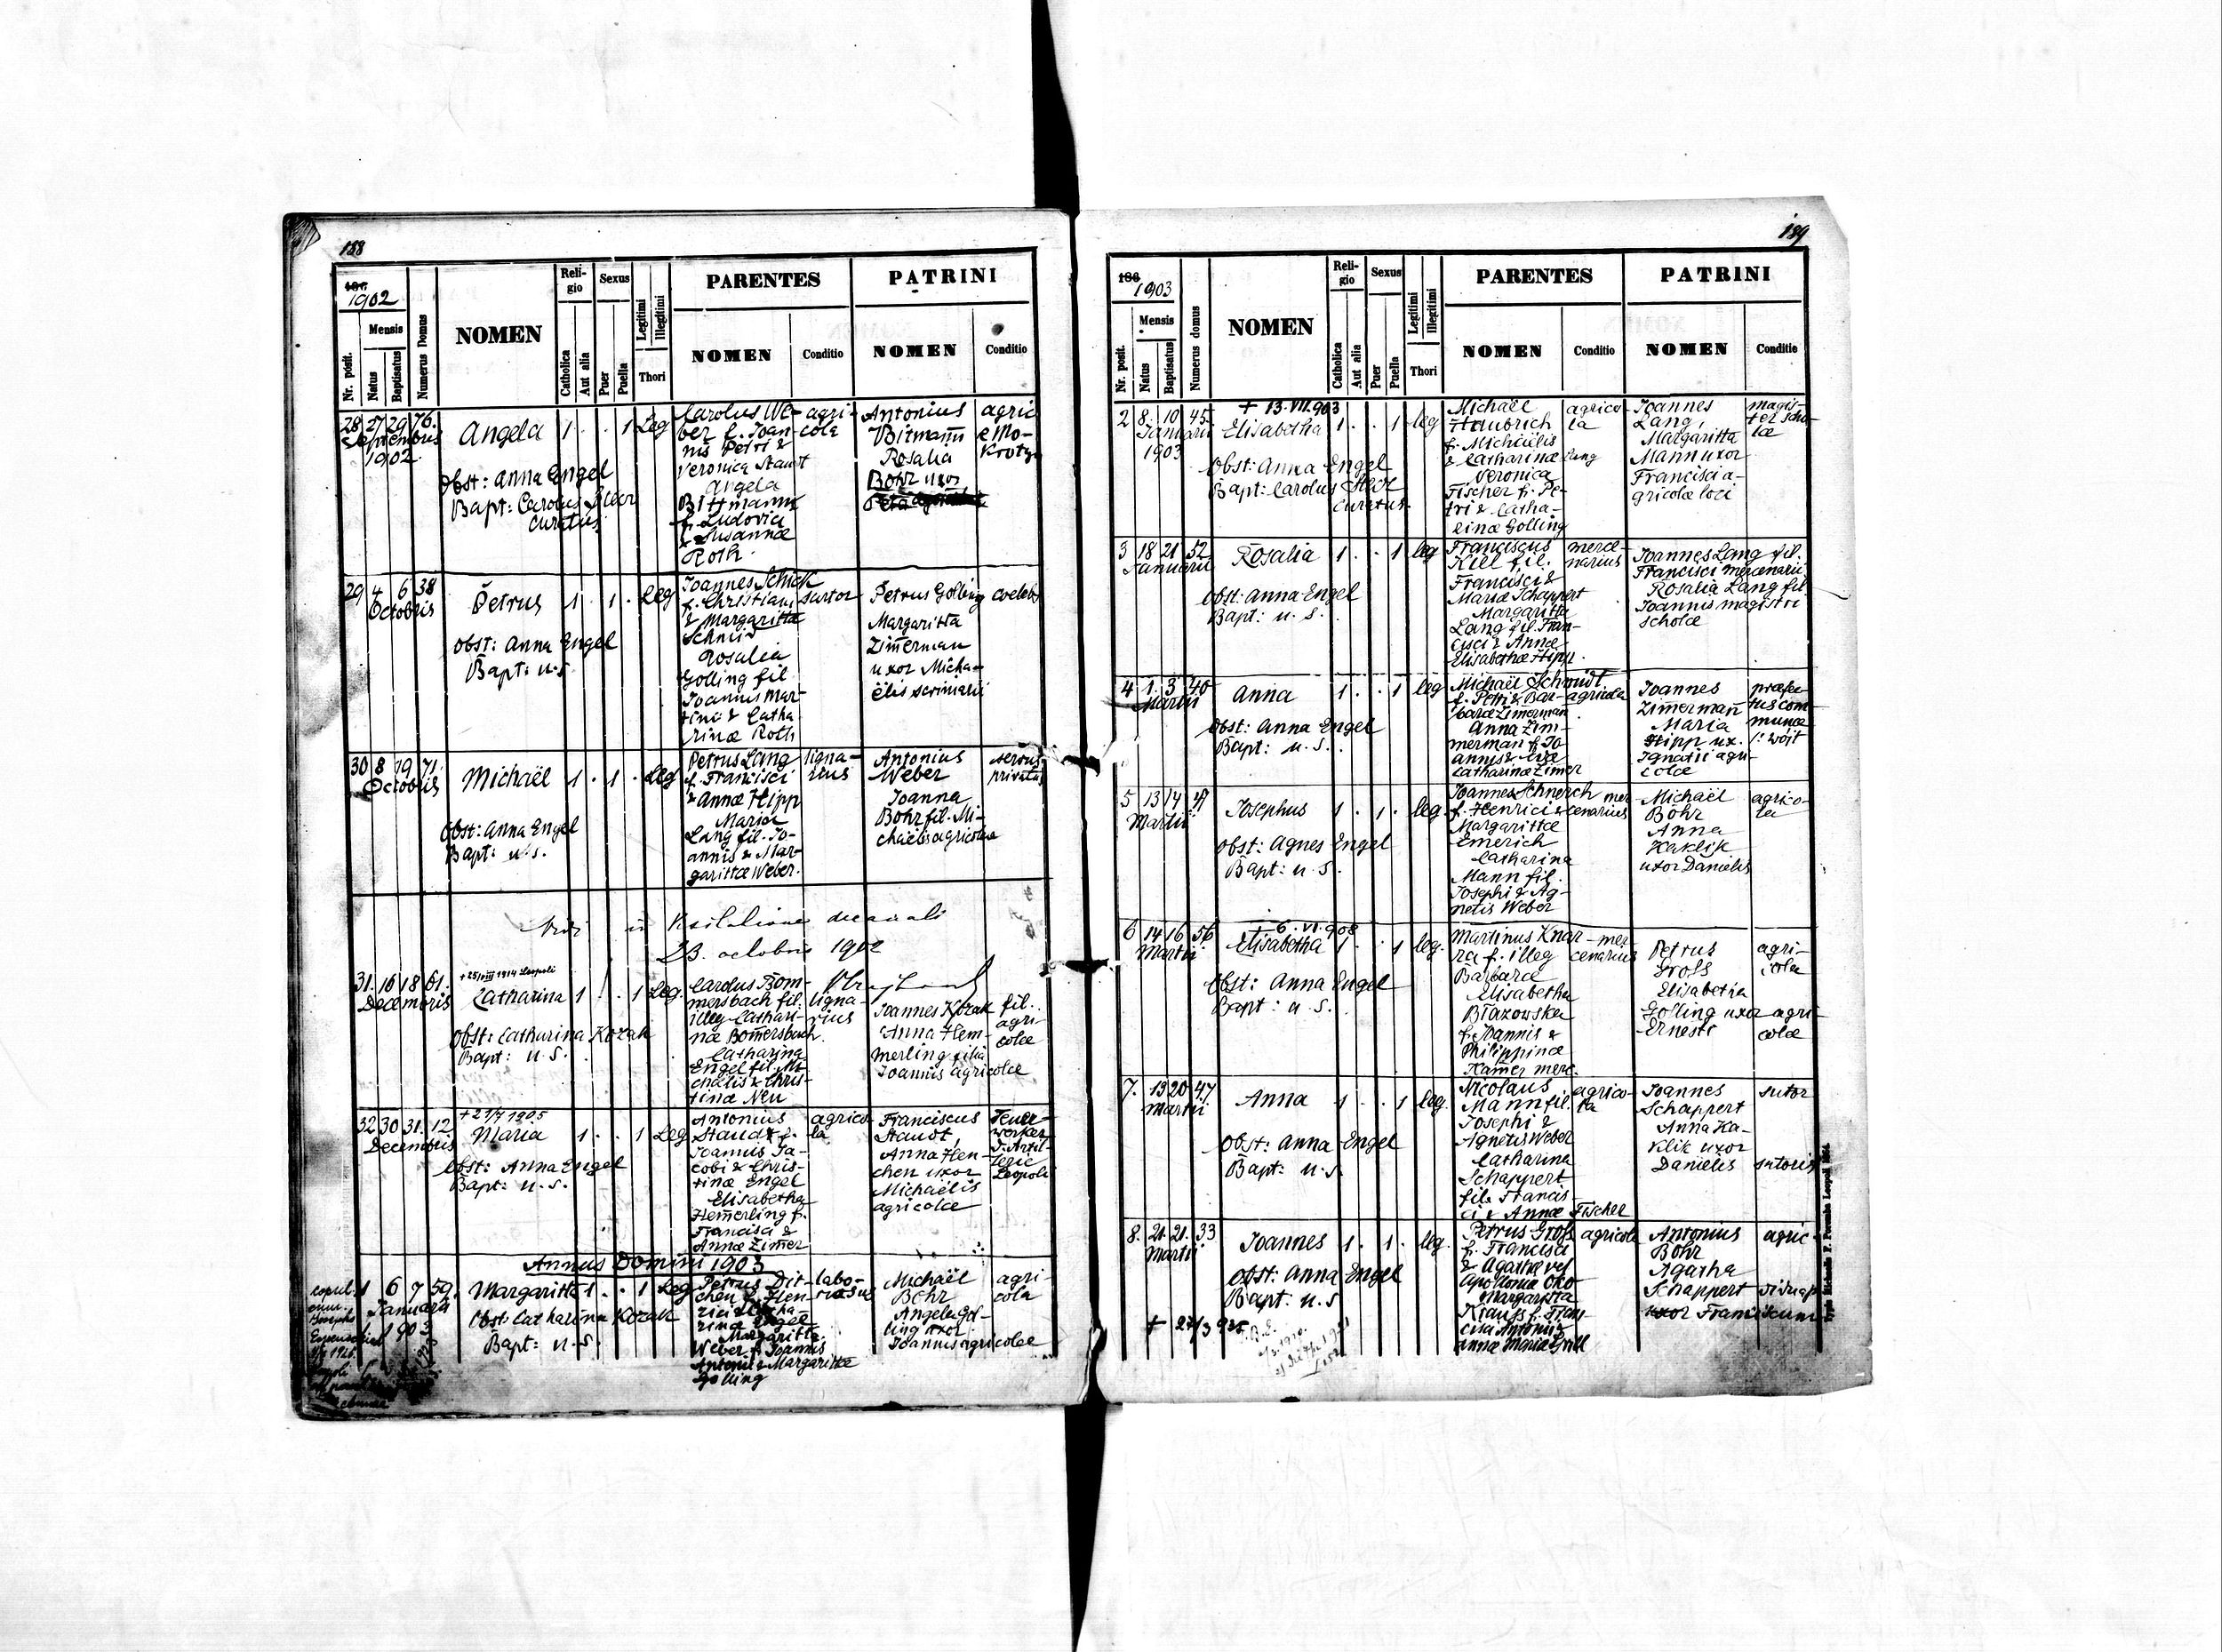 188
1902
Nr. posit.
Mensis
Natus
Baptisatus
Numerus Domus
NOMEN
Reli-
gio
Catholica
Aut alia
Sexus
Puer
Puella
Legitimi
Illegitimi
Thori
PARENTES
NOMEN
Conditio
PATRINI
NOMEN
Conditio
28 27 29 76.
Septembris
1902.
Angela 1 . . 1 Leg
Obst: Anna Engel
Bapt: Carolus
curatus
Carolus We-
ber f. Joan-
nis Petri &
Veronica Staudt
Angela
Bittmann
f. Ludovici
& Susannæ
Roth.
agri-
cola
Antonius
Bitmann
Rosalia
Böhr uxor
agric
e Mo-
krotyn
29 4 6 38
Octobris
Petrus 1 . 1 . Leg
Obst: Anna Engel
Bapt: u.s.
Joannes Schick
f. Christiani
& Margarittæ
Schmid
Rosalia
Golling fil.
Joannis Mar-
tini & Catha
rinæ Roth
sartor
Petrus Golling
Margaritta
Zimerman
uxor Micha-
ëlis scriniarii
coelebs
30 8 19 71.
Octobris
Michaël 1 . 1 . Leg
Obst: Anna Engel
Bapt: u.s.
Petrus Lang
f. Francisci
& Annæ Hipp
Maria
Lang fil. Jo-
annis & Mar-
garittæ Weber.
ligna-
rius
Antonius
Weber
Joanna
Böhr fil. Mi-
chaëlis agricolæ
servus
privatus
Vidi in Visitatione decanali
23. octobris 1902
31. 16 18 61.
Decembris
Catharina 1 . . 1 Leg.
Obst: Catharina Kozak
Bapt: u.s.
Carolus Bom-
mersbach fil.
illeg. Cathari-
næ Bomersbach
Catharina
Engel fil. Mi-
chaëlis & Chris-
tinæ Neu
ligna-
rius
Joannes Kozak
Anna Hem-
merling filia
Joannis agricolæ
fil.
agri-
colæ
32 30 31. 12
Decembris
Maria 1 . . 1 Leg
Obst: Anna Engel
Bapt: u.s.
Antonius
Staudt f.
Joannis Ja-
cobi & Chris-
tinæ Engel
Elisabetha
Hemerling f.
Francisci &
Annæ Zimer
agrico-
la
Franciscus
Staudt,
Anna Hen-
chen uxor
Michaëlis
agricolæ
Feuer-
werker
Leopoli
Annus Domini 1903
1 6 7 59.
Januarii
1903
Margaritta 1 . . 1 Leg
Obst: Catharina Kozak
Bapt: u.s.
Petrus Dit-
chen f. Hen-
rici & Catha
rinæ Engel
Margaritta
Weber f. Joannis
Antonii & Margarittæ
Golling
Michaël
Böhr
Angela Gol-
ling uxor
Joannis agricolæ
agri-
cola
189
1903
Nr. posit.
Mensis
Natus
Baptisatus
Numerus domus
NOMEN
Reli-
gio
Catholica
Aut alia
Sexus
Puer
Puella
Legitimi
Illegitimi
Thori
PARENTES
NOMEN
Conditio
PATRINI
NOMEN
Conditio
2 8. 10 45
Januarii
1903
+ 13.VII.903
Elisabetha 1 . . 1 leg
Obst: Anna Engel
Bapt: Carolus
curatus
Michaël
Haubrich
f. Michaëlis
& Catharinæ Lang
Veronica
Fischer f. Pe-
tri & Catha-
rinæ Golling
agrico-
la
Joannes
Lang,
Margaritta
Mann uxor
Francisci a-
gricolæ loci
magis-
ter scho-
læ
3 18 21 52
Januarii
Rosalia 1 . . 1 leg
Obst: Anna Engel
Bapt: u.s.
Franciscus
Kiel fil.
Francisci &
Mariæ Schappert
Margaritta
Lang fil. Fran-
cisci & Annæ
Elisabethæ Hipp.
merce-
narius
Joannes Lang fil.
Francisci mercenarii
Rosalia Lang fil.
Joannis magistri
scholæ
4 1. 3 40
Martii
Anna 1 . . 1 leg
Obst: Anna Engel
Bapt: u.s.
Michaël Schmidt,
f. Petri & Bar-
baræ Zimerman
Anna Zim-
merman f. Jo-
annis &
Catharinæ Zimer
agricola
Joannes
Zimermann
Maria
Hipp ux.
Ignatii agri-
colæ
præfec-
tus com
munæ
/: wójt
5 13 14
Martii
Josephus 1 . 1 . leg.
Obst: Agnes Engel
Bapt: u.s.
Joannes Schnerch
f. Henrici &
Margarittæ
Emerich
Catharina
Mann fil.
Josephi & Ag-
netis Weber
mer
cenarius
Michaël
Böhr
Anna
Kaklik
uxor Danielis
agrico-
la
6 14 16 56
Martii
+ 6.VI.908
Elisabetha 1 . . 1 leg.
Obst: Anna Engel
Bapt: u.s.
Martinus Knar-
ra f. illeg
Barbaræ
Elisabetha
Błazowska
f. Joannis &
Philippinæ
Kamer merc.
mer-
cenarius
Petrus
Groß
Elisabetha
Golling uxor
Ernesti
agri-
cola
agri-
colæ
7. 13 20 47
Martii
Anna 1 . . 1 leg.
Obst: Anna Engel
Bapt: u.s.
Nicolaus
Mann fil.
Josephi &
Agnetis Weber
Catharina
Schappert
fil. Francis-
ci & Annæ Fischer
agrico-
la
Joannes
Schappert
Anna Ka-
klik uxor
Danielis
sutor
sutoris
8. 21. 21. 33
Martii
Joannes 1 . 1 . leg.
Obst: Anna Engel
Bapt. u.s
+ 27/3 925
Petrus Groß
f. Francisci
& Agathæ vel
Apolloniæ Oko
Margaritta
Krauss f. Fran
cisci Antonii &
Annæ Mariæ Grill
agricola
Antonius
Böhr
Agatha
Schappert
uxor Francisci
agric.